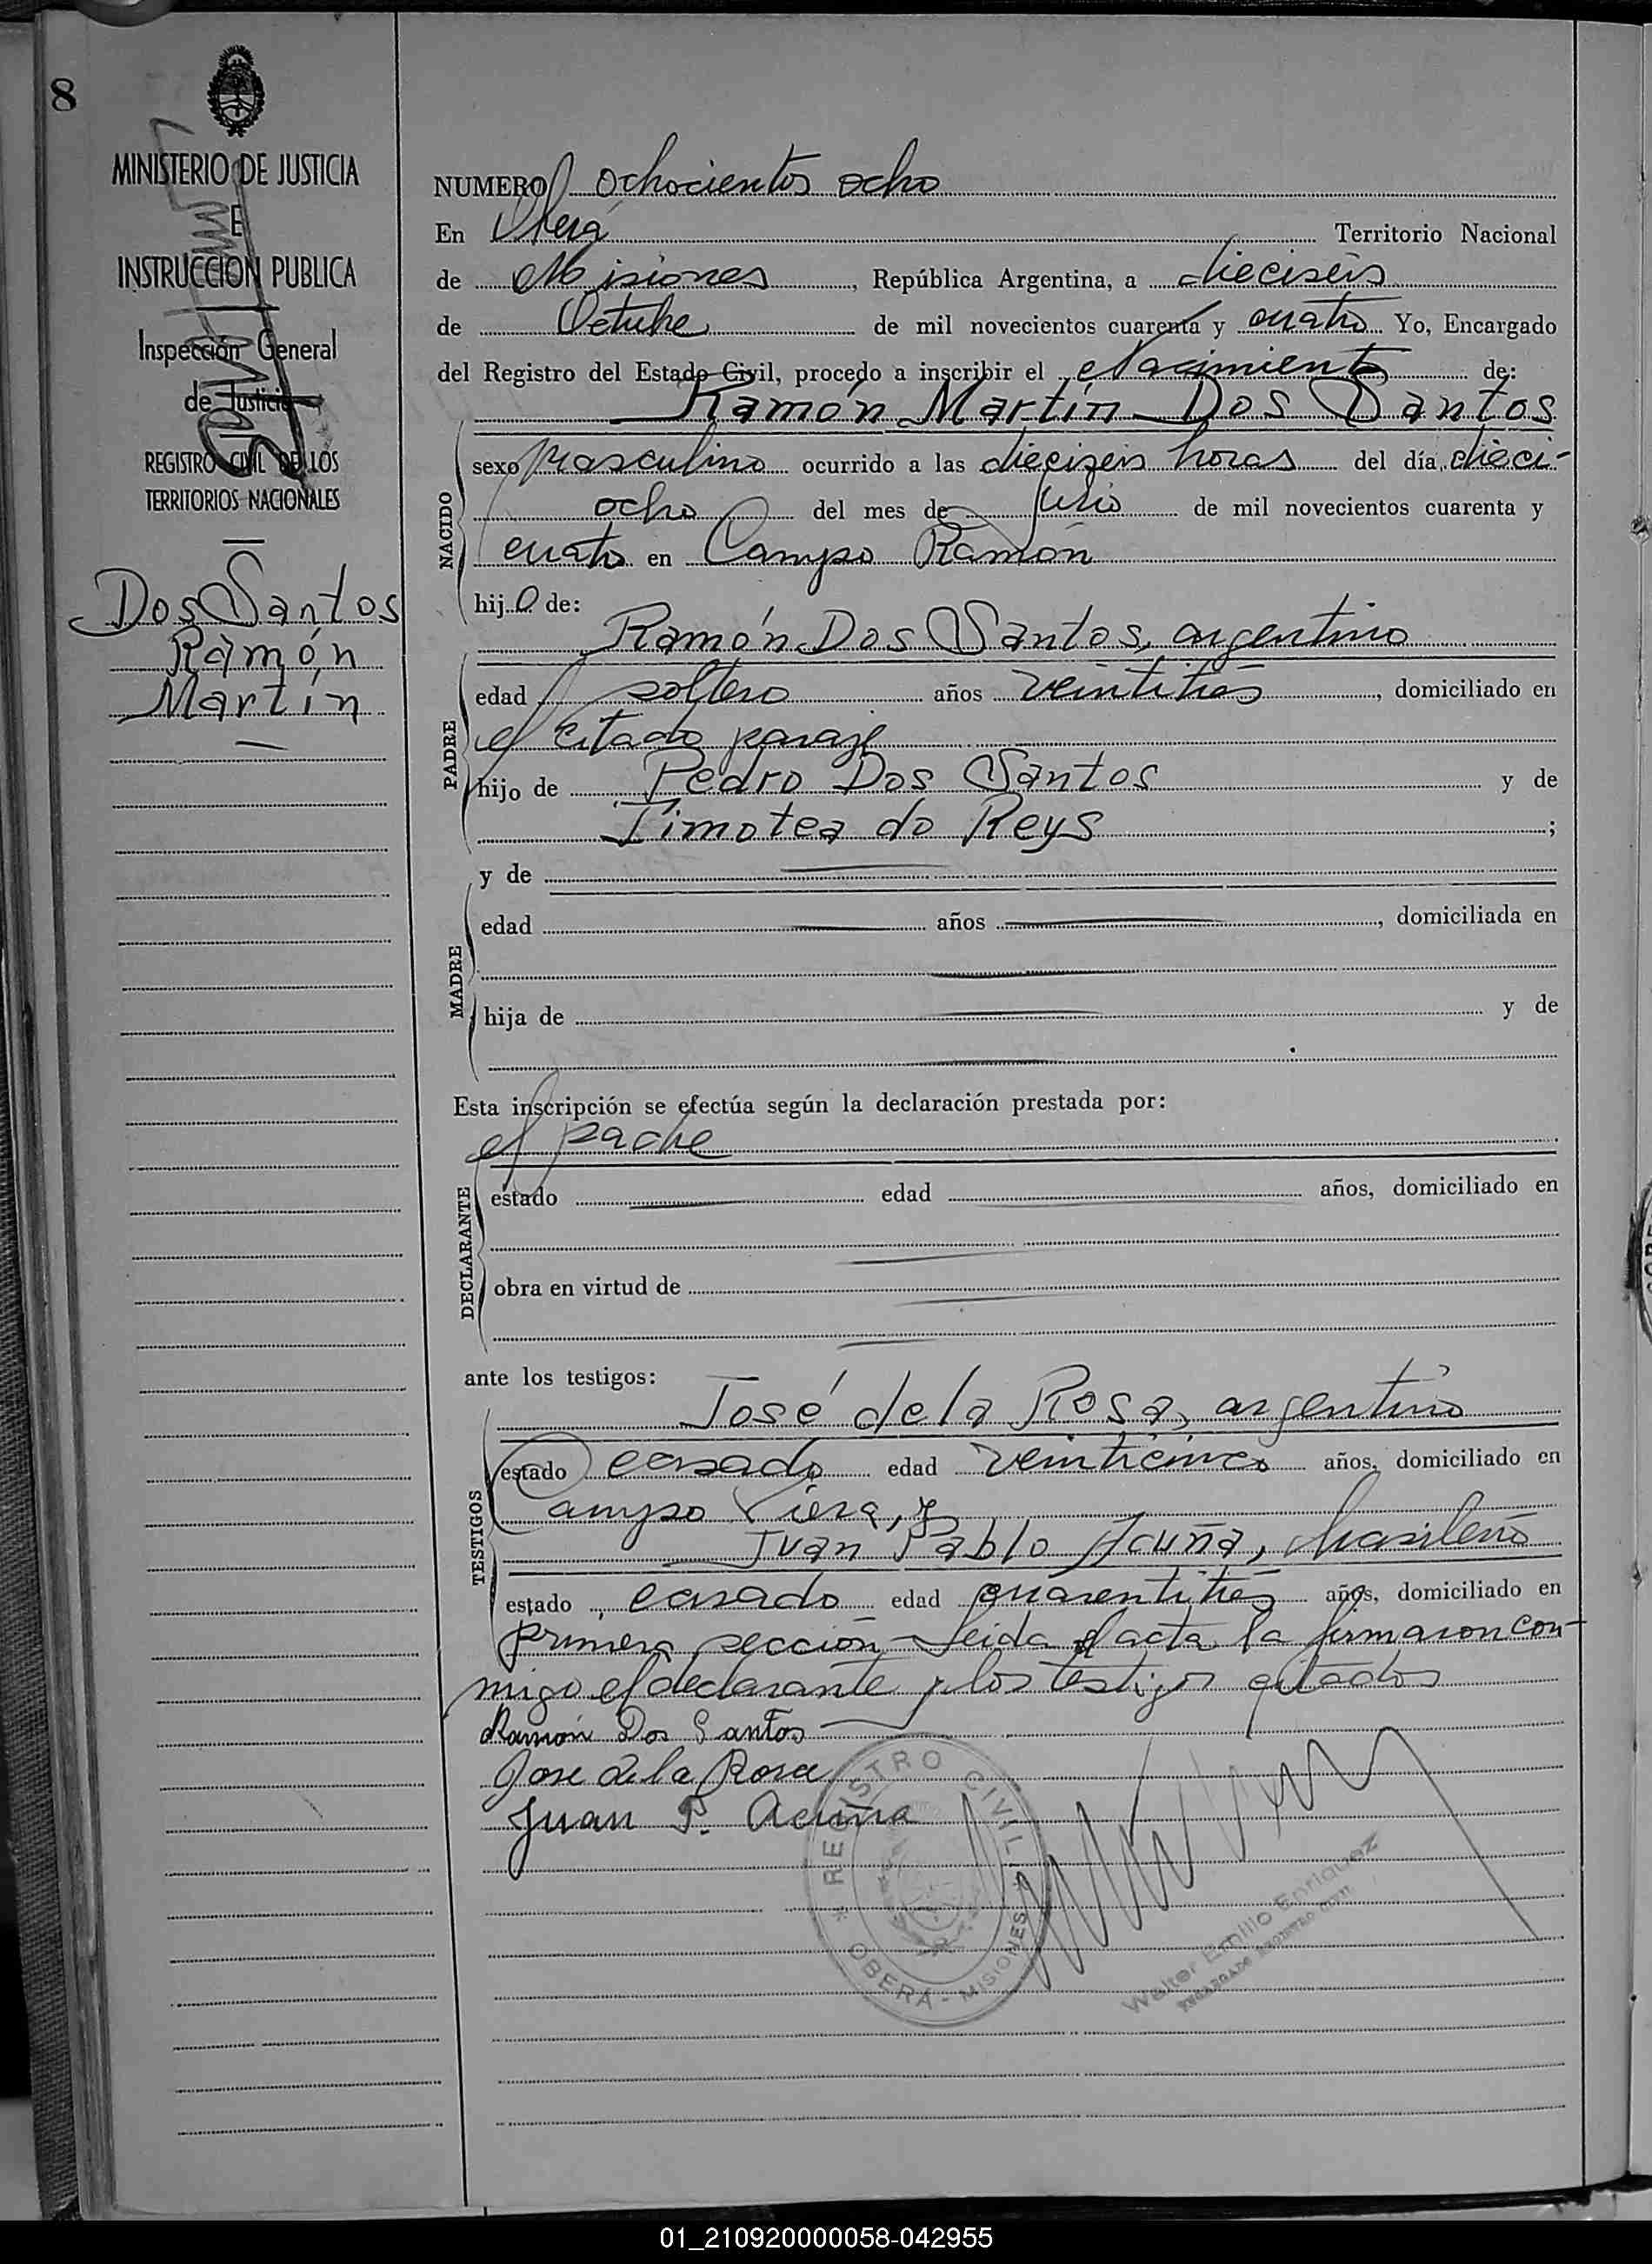 8
MINISTERIO DE JUSTICIA
E
INSTRUCCION PUBLICA
Inspección General
de Justicia
REGISTRO CIVIL DE LOS
TERRITORIOS NACIONALES
Dos Santos
Ramón
Martín
NUMERO ochocientos ocho
En Oberá Territorio Nacional
de Misiones, República Argentina, a dieciseis
de Octubre de mil novecientos cuarenta y cuatro Yo, Encargado
del Registro del Estado Civil, procedo a inscribir el Nacimiento de:
Ramón Martín Dos Santos
NACIDO
sexo masculino ocurrido a las dieciseis horas del día dieci-
ocho del mes de Julio de mil novecientos cuarenta y
cuatro en Campo Ramón
hijo de:
Ramón Dos Santos, argentino
PADRE
edad soltero años veintitrés, domiciliado en
el citado paraje
hijo de Pedro Dos Santos y de
Timotea do Reys;
y de
MADRE
edad años, domiciliada en
hija de y de
Esta inscripción se efectúa según la declaración prestada por:
el padre
DECLARANTE
estado edad años, domiciliado en
obra en virtud de
ante los testigos:
TESTIGOS
José de la Rosa, argentino
estado casado edad veinticinco años, domiciliado en
Campo Viera, y
Juan Pablo Acuña, brasileño
estado, casado edad cuarentitrés años, domiciliado en
primera sección - Leida el acta la firmaron con-
migo el declarante y los testigos citados
Ramón Dos Santos
Jose de la Rosa
Juan P. Acuña
* REGISTRO CIVIL *
OBERÁ - MISIONES
Walter Emilio Enriquez
ENCARGADO REGISTRO CIVIL
01_210920000058-042955